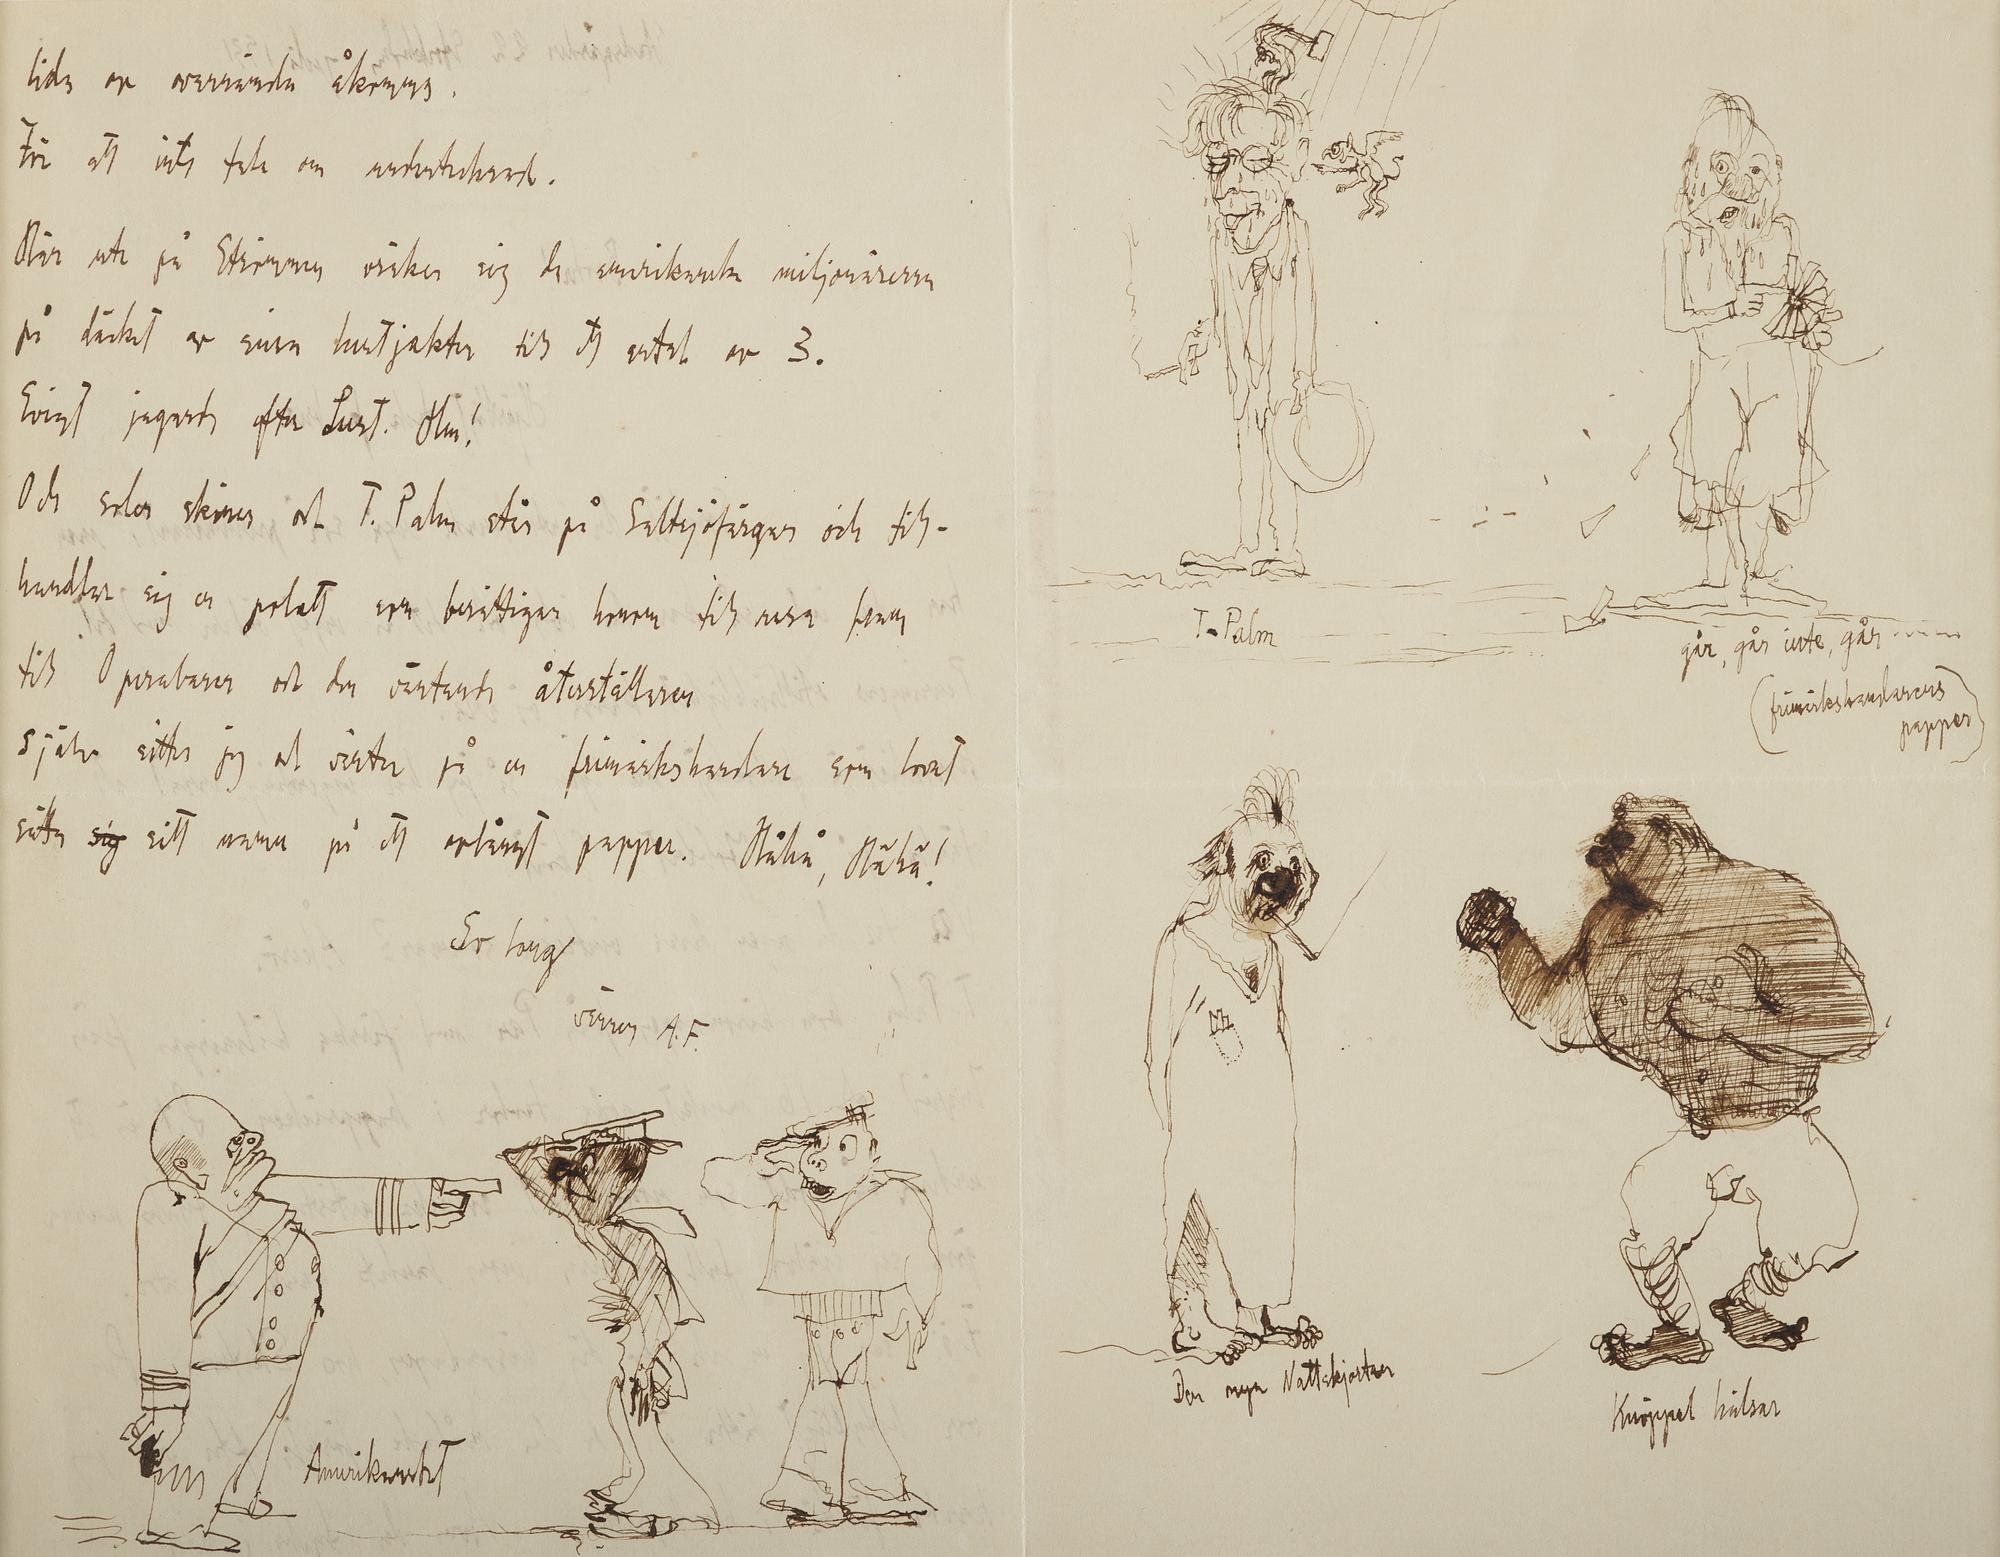 lida av oväsende åkomma.
För att inte tala om
Här ute på Strömmen väcker sig de amerikanska miljonärerna
på däcket av sina lustjakter till ett antal av 3.
Evigt jagande efter Lust. Hm!
Och solen skiner och T. Palm står på Saltsjöfärgan och till-
handlar sig en polett som berättigar honom till resa fram
till Operabaren och den väntande återställaren
Själv sitter jag och väntar på en frimärkshandlare som lovat
sätta sig sitt namn på ett avlångt papper. Håhå, Håhå!
Er tong
vännen A.F.
Amerikanskt
T. Palm
går, går inte, går
(frimärkshandlarens
papper)
Den nya Nattskjortan
Knöppel hälsar